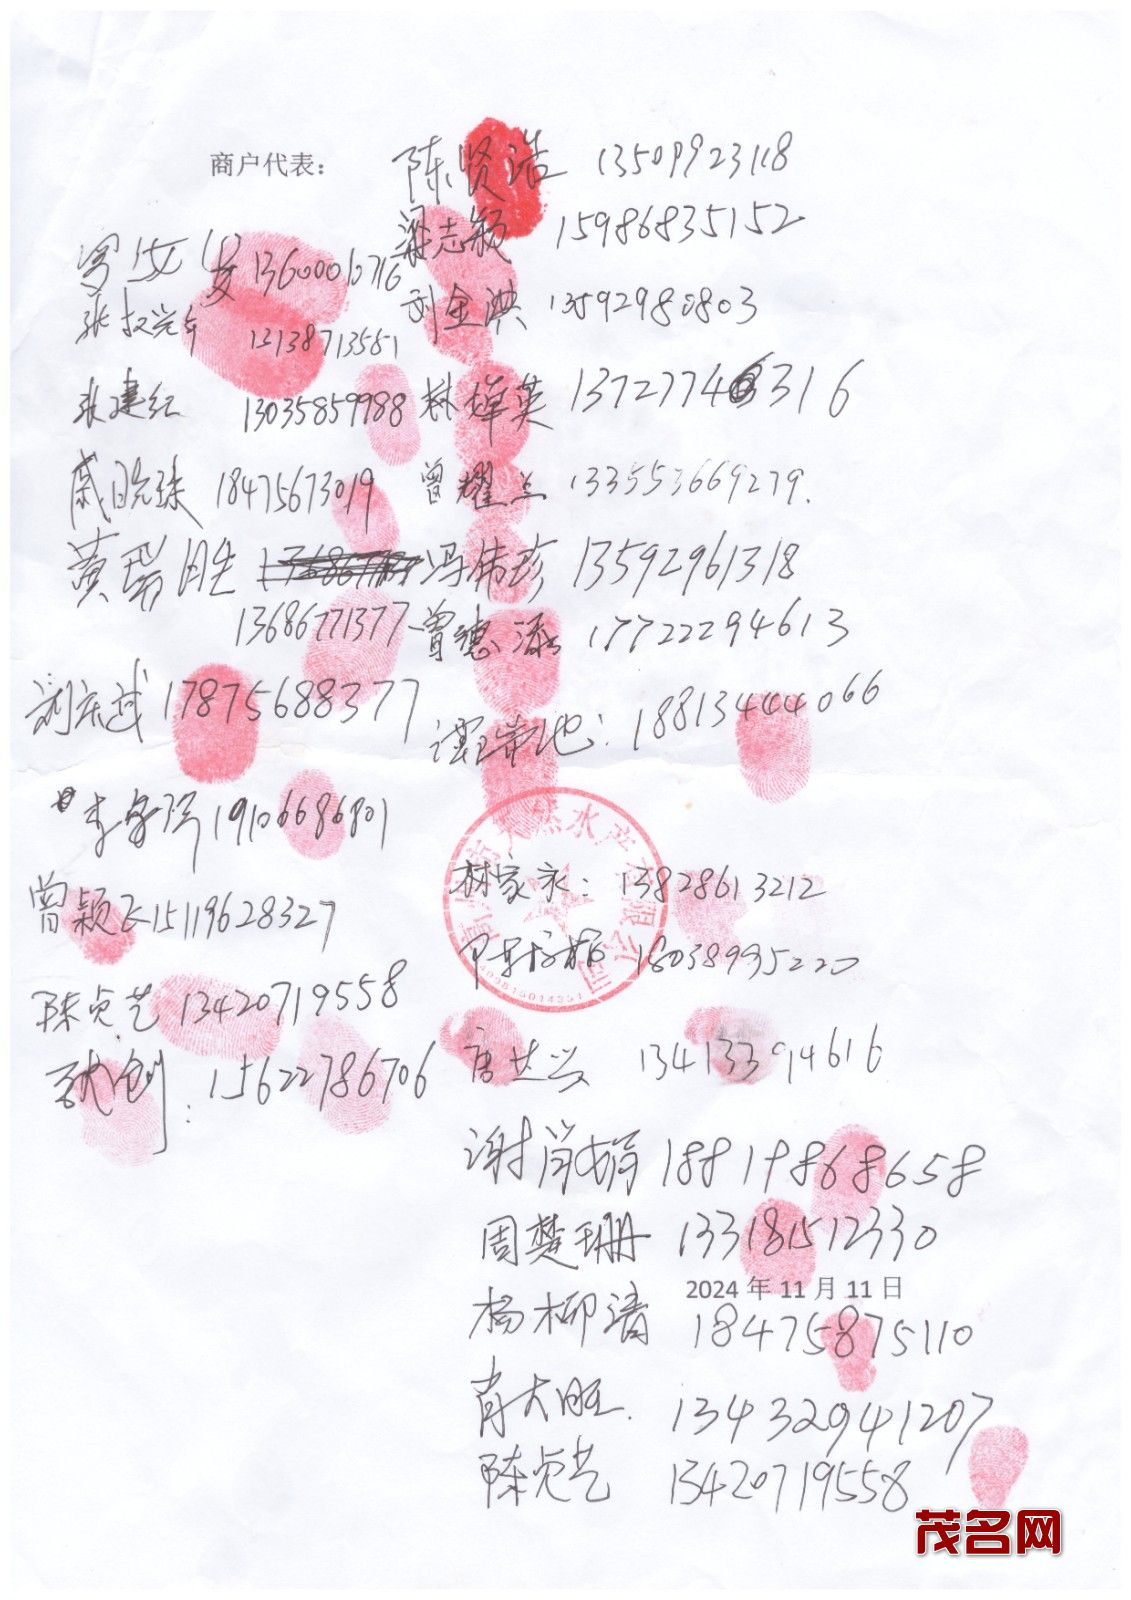 商户代表： 陈贤浩 13509923118
梁志颖 15986835152
13600010716
刘金洪 13592980803
张 13138713551
张建红 13035859988
林婵英 13727746316
戚晓珠 18475673019
曾耀兰 133553669279.
黄瑞胜
冯伟珍 13592961318
13686771377
曾德添 17722294613
刘东越 17875688377
谭瑞地： 18813444066
李 19106686801
水产有限公司
林家永： 13828613212
曾颖飞 15119628327
18038995220
陈贞艺 13420719558
唐 兴 13413394616
创： 15622786706
谢肖娟 18819868658
周楚珊 133181512330
2024 年 11 月 11 日
杨柳清 18475875110
肖大旺. 13432941207
陈贞艺 13420719558
茂名网